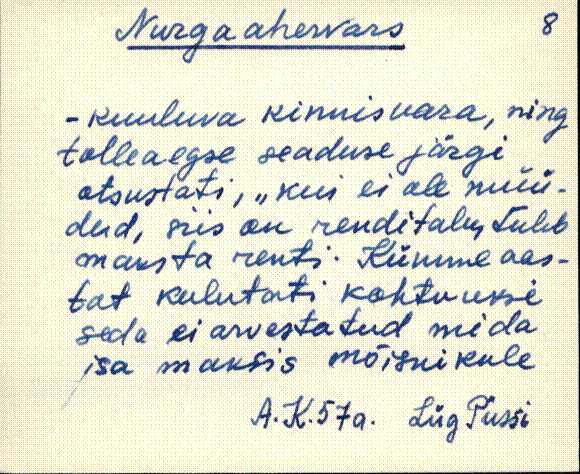 Nurga ahervars 8
- kuuluva kinnisvara, ning
tolleaegse seaduse järgi
otsustati, „kui ei ole müü-
dud, siis on renditalu, tuleb
maksta renti. Kümme aas-
tat kulutati kohtu uksi
seda ei arvestatud mida
isa maksis mõisnikule
A.K. 57a. Lüg Püssi